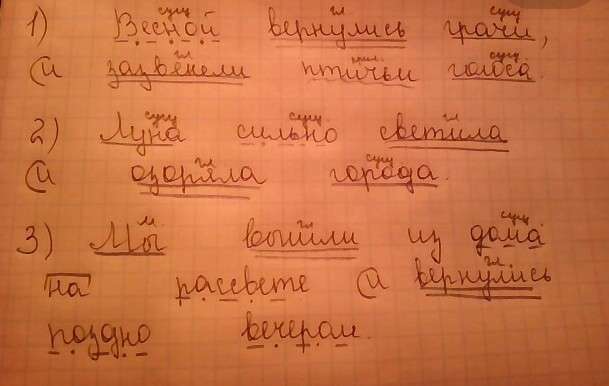 сущ гл сущ
1) Весной вернулись грачи,
гл прил. сущ
и зазвенели птичьи голоса.
сущ сущ гл
2) Луна сильно светила
гл сущ
и озоряла города.
м. гл сущ
3) Мы вышли из дома
гл.
на рассвете и вернулись
поздно вечером.